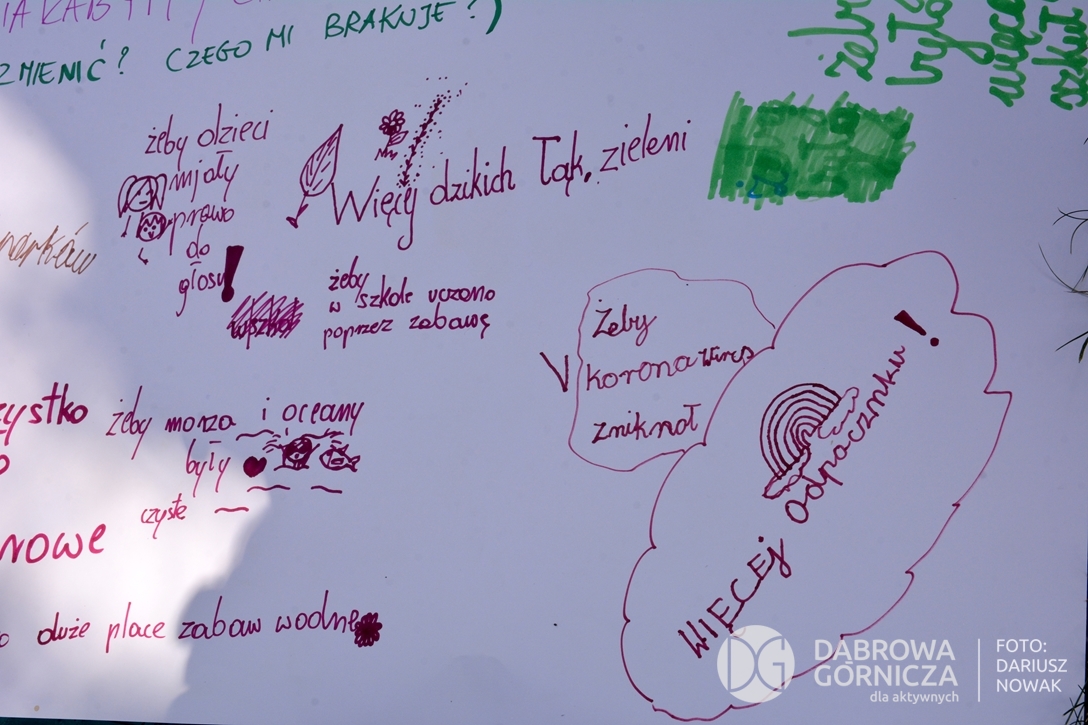 ZMIENIĆ? CZEGO MI BRAKUJE?)
żeby dzieci
miały
prawo
do
głosu!
Więcej dzikich łąk, zieleni
parków
żeby
w szkole uczono
poprzez zabawę
Żeby
koronawirus
zniknoł
WIĘCEJ odpoczynku!
zystko
żeby morza i oceany
były
czyste
nowe
duże place zabaw wodne
DĄBROWA
GÓRNICZA
dla aktywnych
FOTO:
DARIUSZ
NOWAK